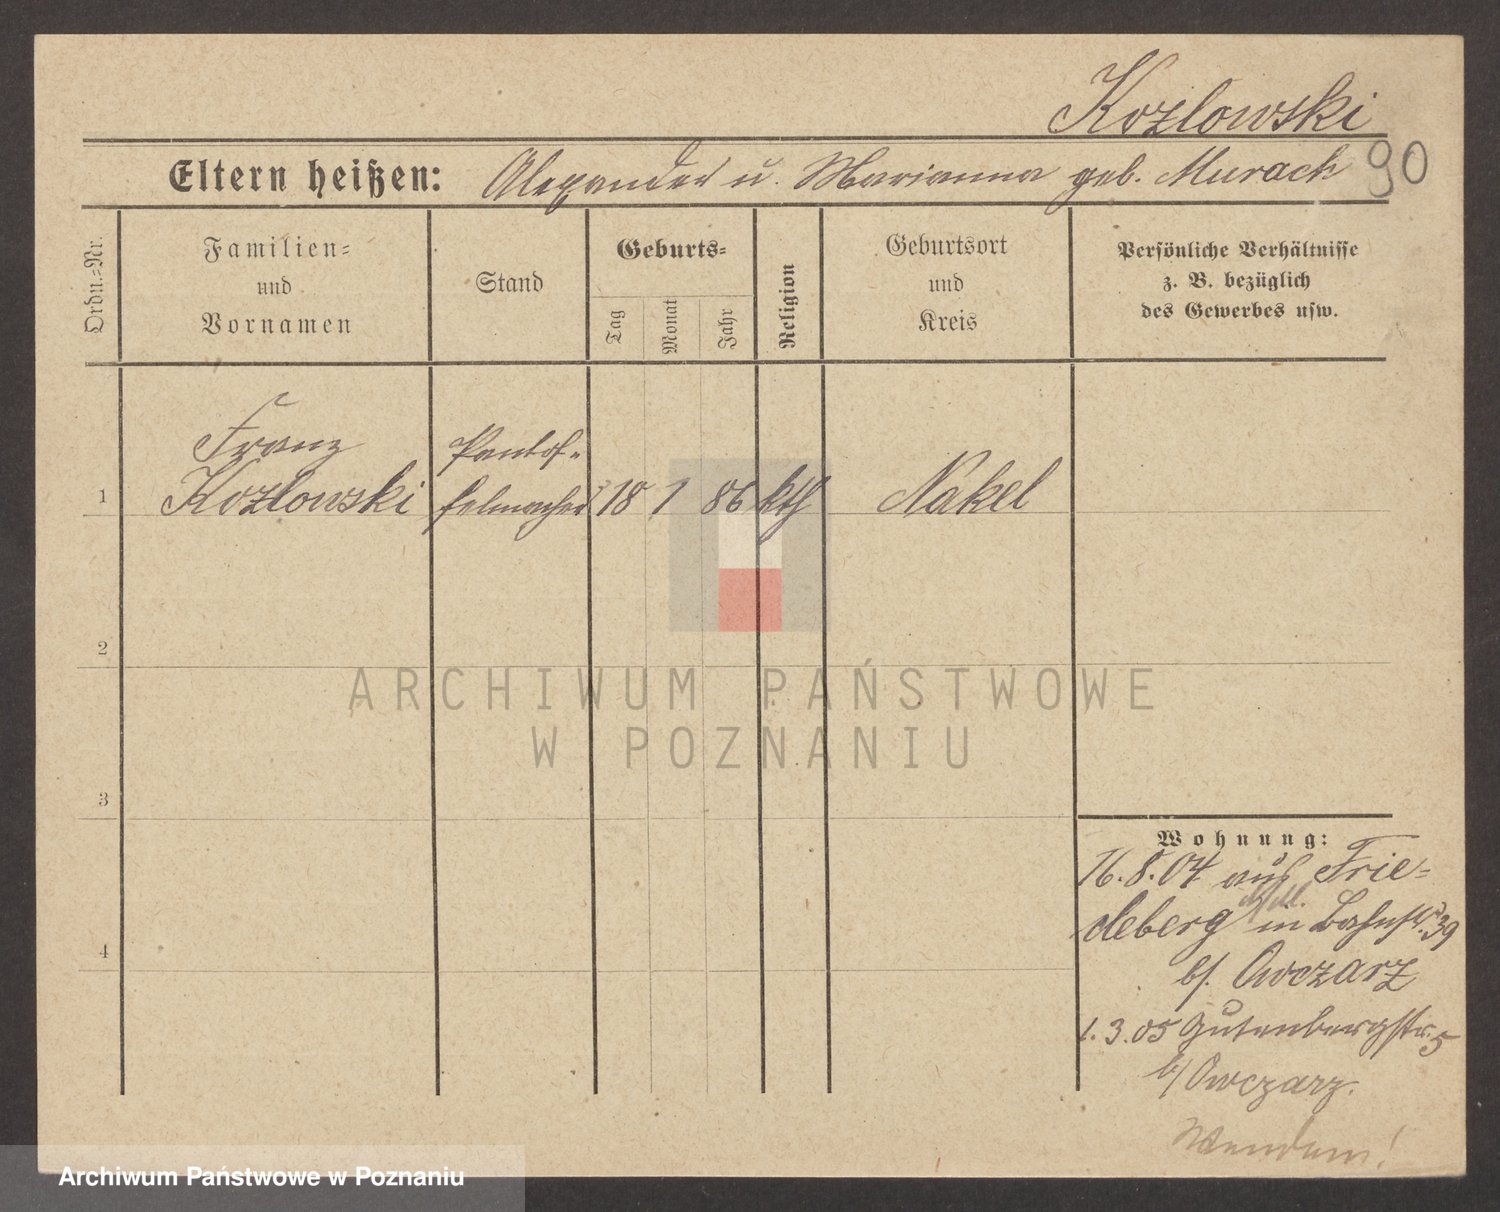 Kozlowski
Eltern heißen: Alexander u. Marianna geb. Murach 90
Ordn.=Nr.
Familien=
und
Vornamen
Stand
Geburts=
Tag
Monat
Jahr
Religion
Geburtsort
und
Kreis
Persönliche Verhältnisse
z. B. bezüglich
des Gewerbes usw.
1
Franz
Kozlowski
Pantof-
felmacher
18 1 86 kth
Nakel
2
3
4
ARCHIWUM PAŃSTWOWE
W POZNANIU
Wohnung:
16.8.04 aus Frie=
deberg in Bahnhstr. 39
b/. Owczarz
1.3.05 Gutenbergstr. 5
b/ Owczarz.
Wenden!
Archiwum Państwowe w Poznaniu